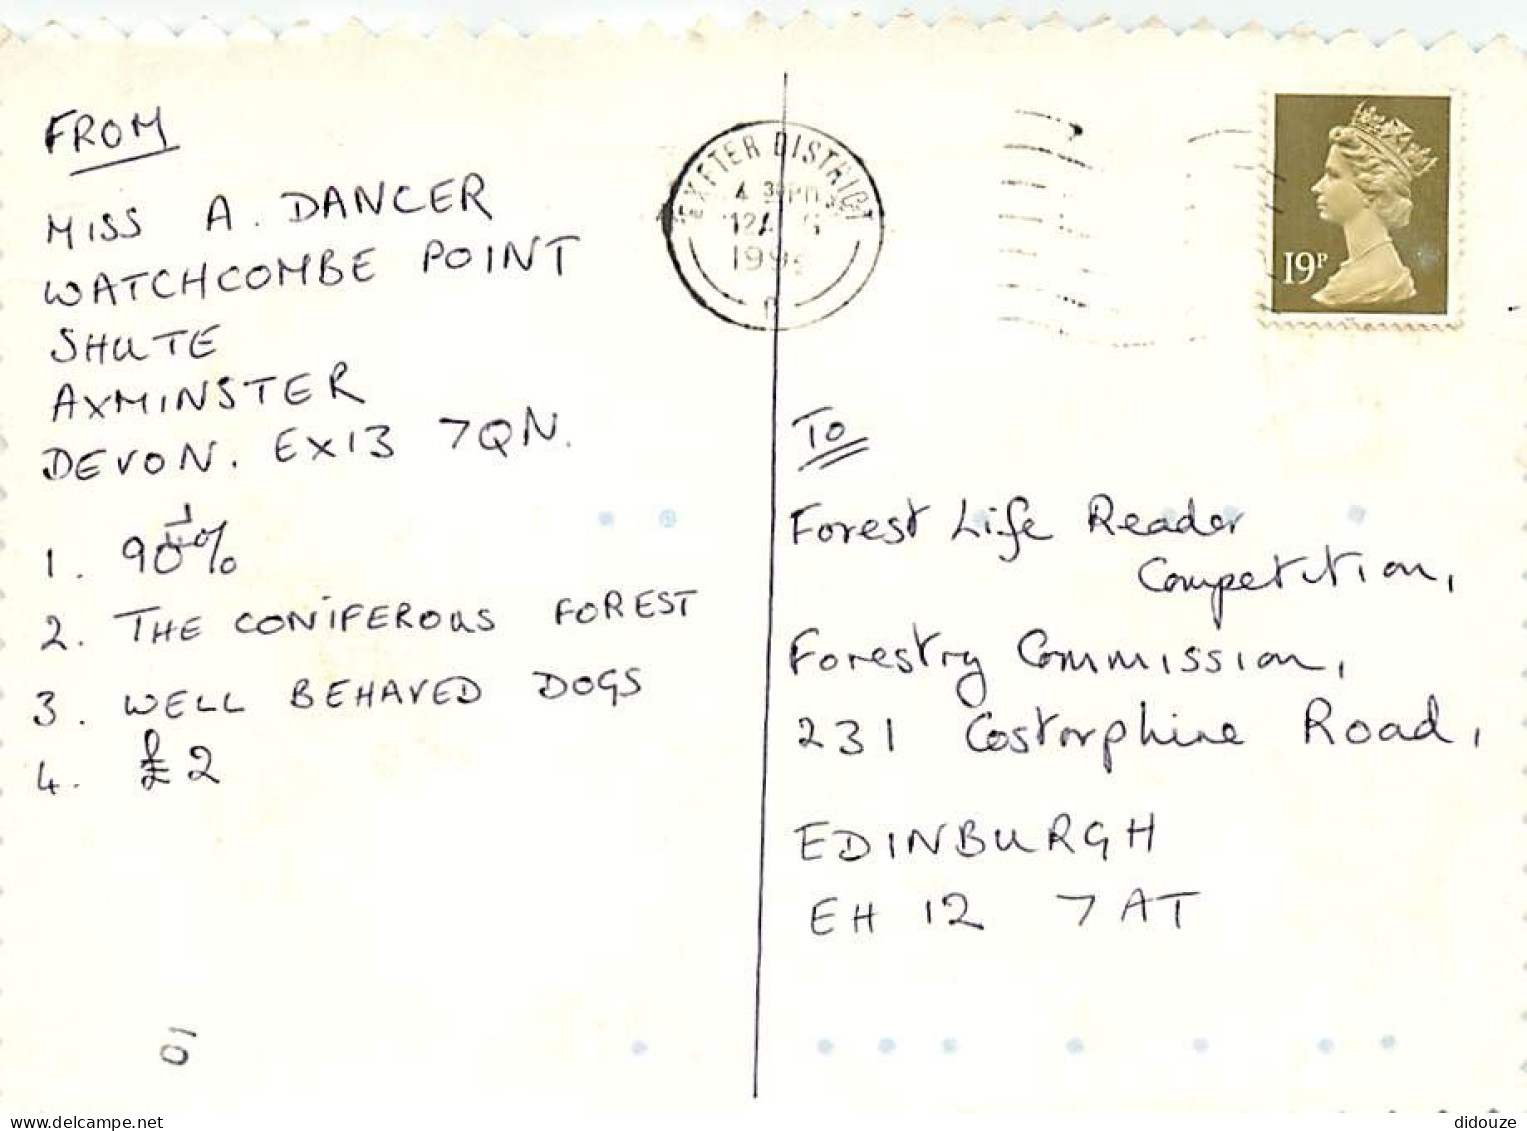 FROM
MISS A. DANCER
WATCHCOMBE POINT
SHUTE
AXMINSTER
DEVON. EX13 7QN.
1. 90%
2. THE CONIFEROUS FOREST
3. WELL BEHAVED DOGS
4. £2
EXETER DISTRICT
12AUG
19P
To
Forest Life Reader
Competition,
Forestry Commission,
231 Costorphine Road,
EDINBURGH
EH 12 7AT
10
delcampe.net
didouze